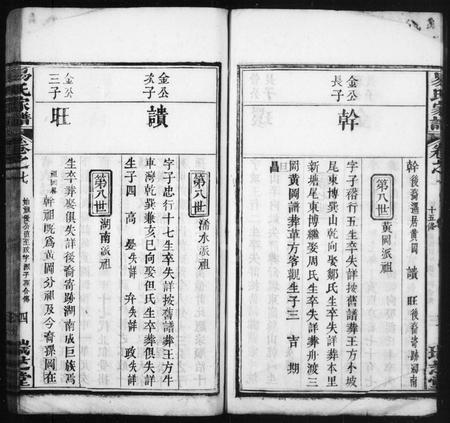 易氏家譜
卷之七
幹 後裔遷居黃岡
讀
旺 後裔寄跡湖南
金公長子
幹
第八世
黃岡派祖
字子
行五生卒失詳按舊譜葬王方小坡
尾東博巽山乾向娶鄒氏生卒失詳葬本里
新塘尾東博繼娶周氏生卒失詳葬舟渡三
岡黃岡譜葬草方客觀生子三 吉 期
金公次子
讀
第八世
字子忠行十七生卒失詳按舊譜葬王方牛
車灣乾巽兼亥巳向娶但氏生卒葬俱失詳
生子四 高 失詳 失詳 政 失詳
金公三子
旺
第八世
湖南派祖
生卒葬娶俱失詳後裔寄跡湖南成巨族焉
幹祖既為黃岡分祖及今裔孫岡在
易氏家譜
卷之七
四